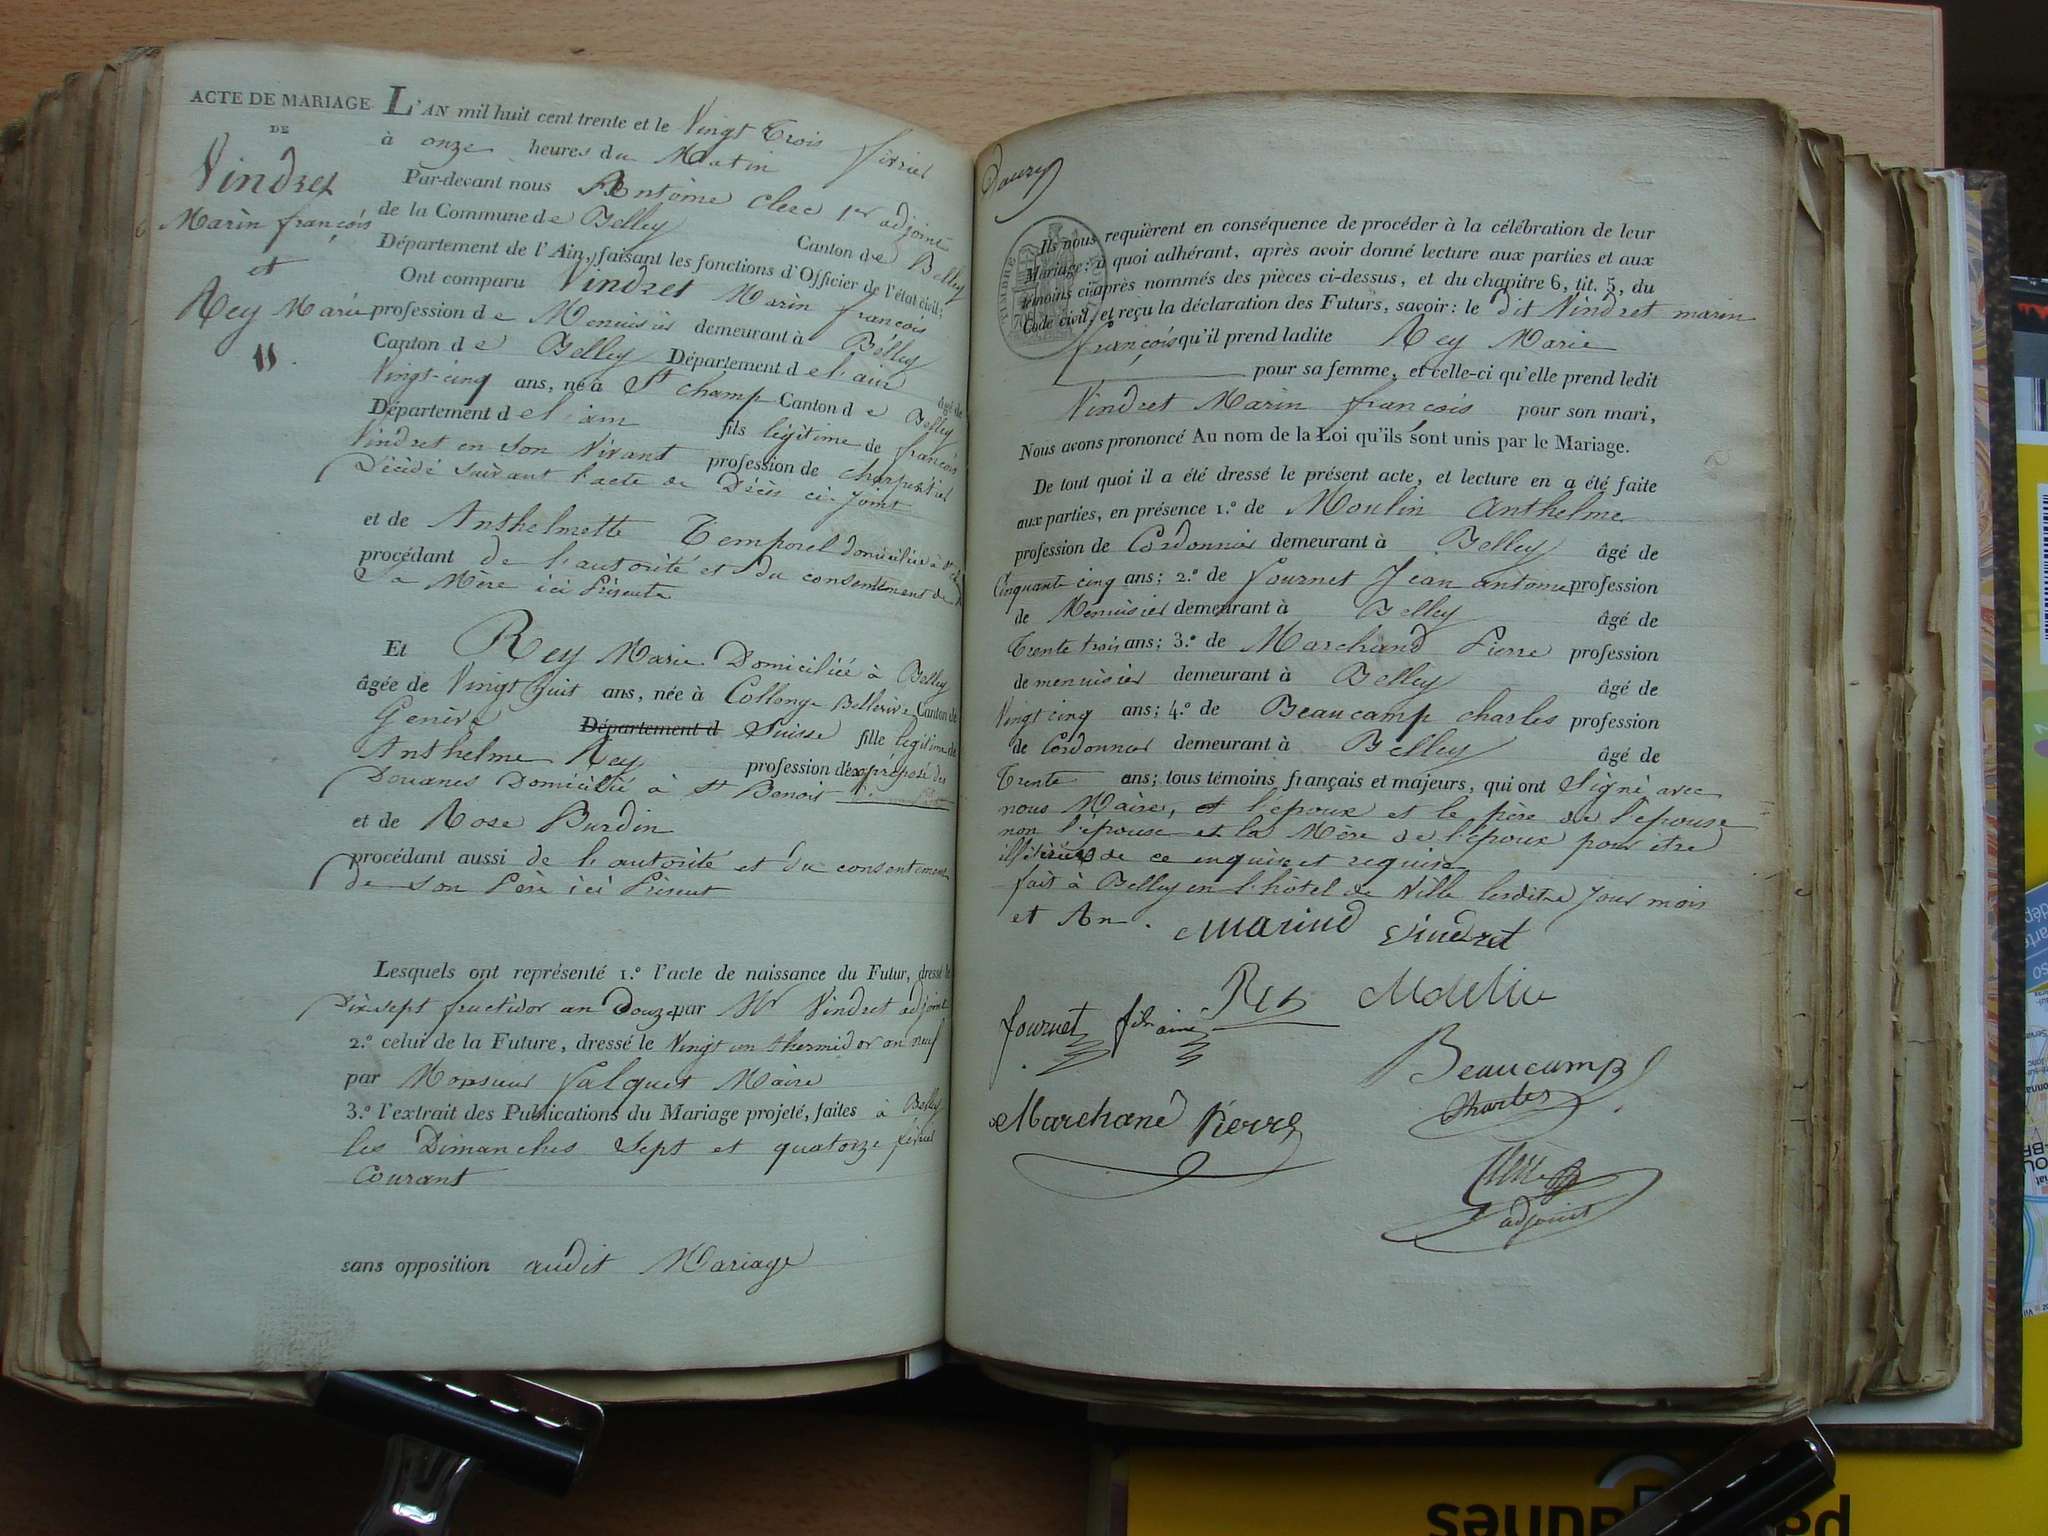 ACTE DE MARIAGE
DE
Vindret
Marin françois
et
Rey Marie
L'AN mil huit cent trente et le Vingt Trois fevrier
à onze heures du Matin
Par-devant nous Antoine Clerc 1er adjoint
de la Commune de Belley Canton de Belley
Département de l'Ain, faisant les fonctions d'Officier de l'état civil;
Ont comparu Vindret Marin françois
profession de Menuisier demeurant à Belley
Canton de Belley Département de l'ain âgé de
Vingt-cinq ans, né à St champ Canton de Belley
Département de l'ain fils légitime de françois
Vindret en son Vivant profession de charpentier
Décédé suivant l'acte de Décès ci-joint
et de Anthelmette Temporel domiciliée à
procédant de l'autorité et du consentement de
Sa Mère ici Présente
Et Rey Marie Domiciliée à Belley
âgée de Vingt huit ans, née à Collonge Bellerive Canton de
Genève Département d Suisse fille légitime de
Anthelme Rey profession d'ex préposé des
Douanes Domicilié à St Benoit
et de Rose Burdin
procédant aussi de l'autorité et du consentement
de son Père ici Présent
Lesquels ont représenté 1.º l'acte de naissance du Futur, dressé le
Dix sept fructidor an Douze par Mr Vindret adjoint
2.º celui de la Future, dressé le Vingt un thermidor an neuf
par Monsieur Falquet Maire
3.º l'extrait des Publications du Mariage projeté, faites à Belley
les Dimanches Sept et quatorze février
Courant
sans opposition audit Mariage
TIMBRE
Ils nous requièrent en conséquence de procéder à la célébration de leur
Mariage: à quoi adhérant, après avoir donné lecture aux parties et aux
témoins ci-après nommés des pièces ci-dessus, et du chapitre 6, tit. 5, du
Code civil, et reçu la déclaration des Futurs, savoir: le dit Vindret marin
françois qu'il prend ladite Rey Marie
pour sa femme, et celle-ci qu'elle prend ledit
Vindret Marin françois pour son mari,
Nous avons prononcé Au nom de la Loi qu'ils sont unis par le Mariage.
De tout quoi il a été dressé le présent acte, et lecture en a été faite
aux parties, en présence 1.º de Moulin Anthelme
profession de Cordonnier demeurant à Belley âgé de
Cinquante cinq ans; 2.º de fournet Jean antoine profession
de Menuisier demeurant à Belley âgé de
Trente trois ans; 3.º de Marchand Pierre profession
de menuisier demeurant à Belley âgé de
Vingt cinq ans; 4.º de Beaucamp charles profession
de Cordonnier demeurant à Belley âgé de
Trente ans; tous témoins français et majeurs, qui ont Signé avec
nous Maire, et l'epoux et le père de l'épouse
non l'épouse et la Mère de l'époux pour être
illitérées de ce enquise et requise
fait à Belley en l'hôtel de Ville lesdits jour mois
et An.
Marind Vindret
Rey
fournet fils ainé
Beaucamp
Charles
Marchand Pierre
adjoint
pa aunes